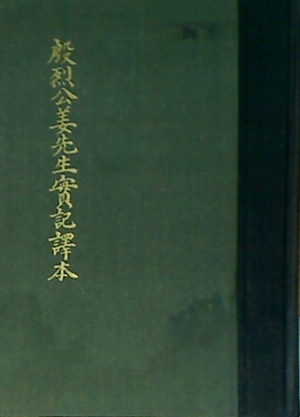 殷烈公姜先生實記譯本